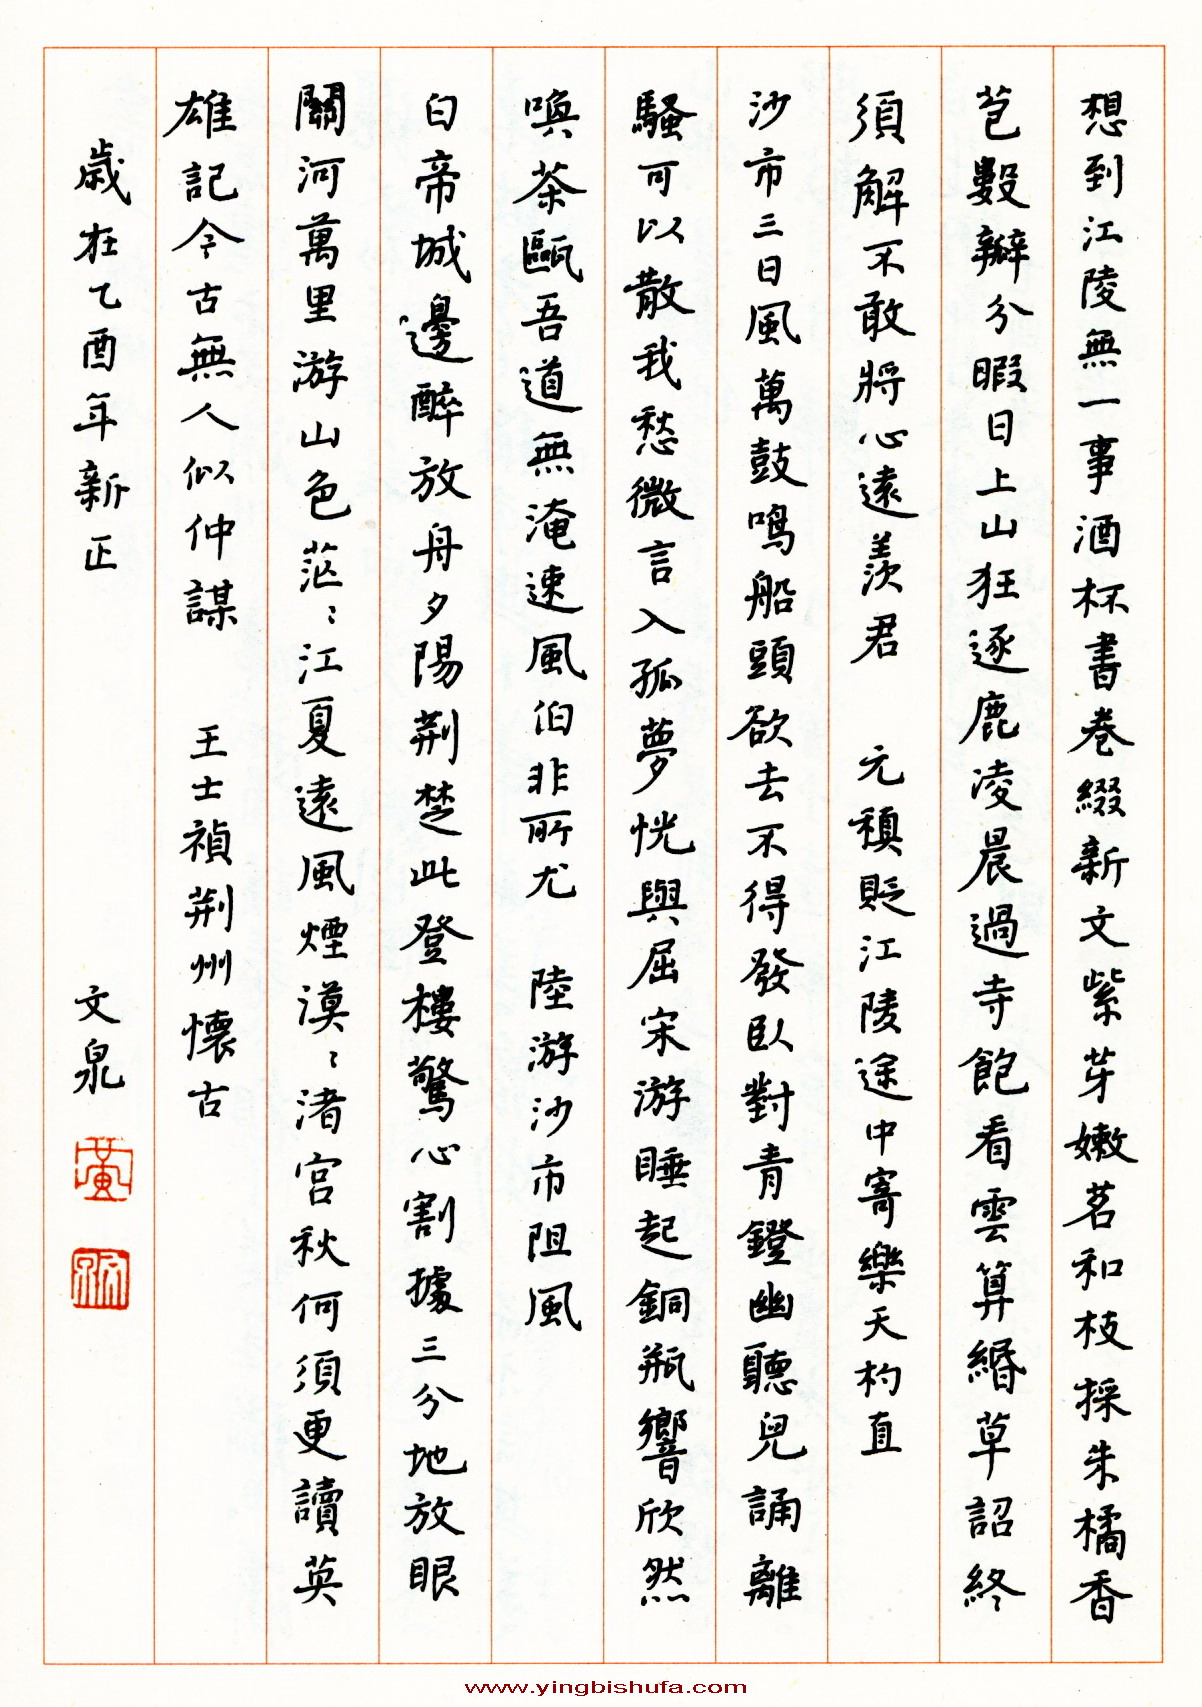 想到江陵無一事酒杯書卷綴新文紫芽嫩茗和枝採朱橘香
苞數瓣分暇日上山狂逐鹿凌晨過寺飽看雲算緡草詔終
須解不敢將心遠羨君 元稹貶江陵途中寄樂天杓直
沙市三日風萬鼓鳴船頭欲去不得發臥對青鐙幽聽兒誦離
騷可以散我愁微言入孤夢恍與屈宋游睡起銅瓶響欣然
喚茶甌吾道無淹速風伯非所尤 陸游沙市阻風
白帝城邊醉放舟夕陽荆楚此登樓驚心割據三分地放眼
關河萬里游山色茫〻江夏遠風煙漠〻渚宮秋何須更讀英
雄記今古無人似仲謀 王士禎荆州懷古
歲在乙酉年新正 文泉
黃
www.yingbishufa.com